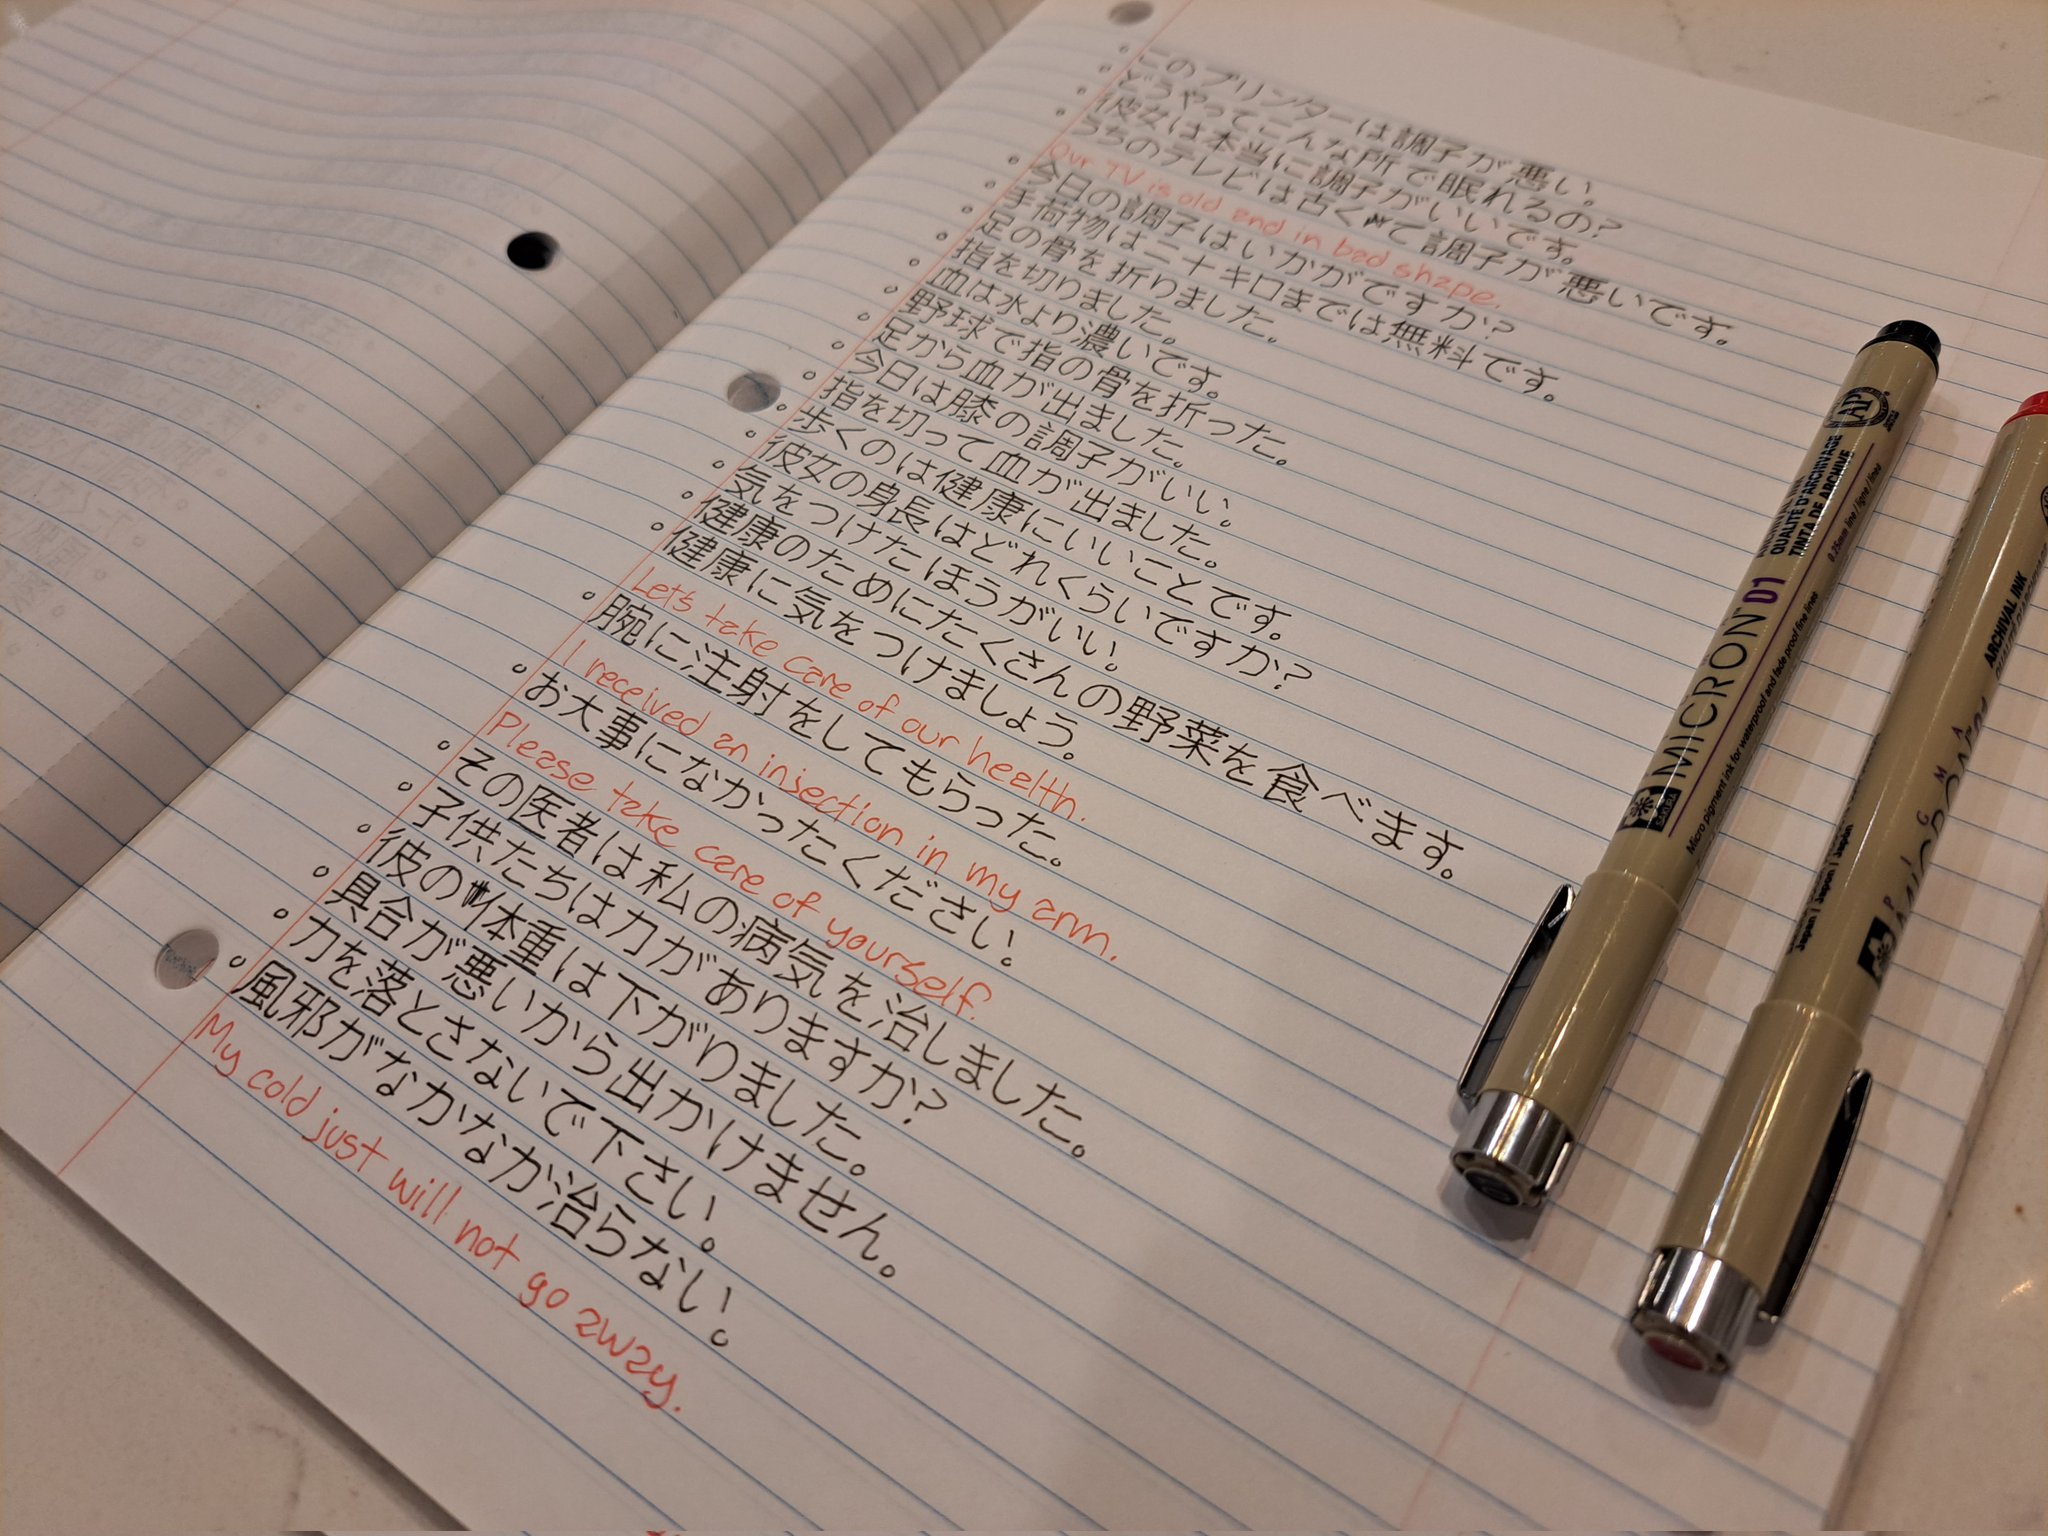 このプリンターは調子が悪い。
どうやってこんな所で眠れるの？
彼女は本当に調子がいいです。
うちのテレビは古くて調子が悪いです。
Our TV is old and in bad shape.
今日の調子はいかがですか？
手荷物は二十キロまでは無料です。
足の骨を折りました。
指を切りました。
血は水より濃いです。
野球で指の骨を折った。
足から血が出ました。
今日は膝の調子がいい。
指を切って血が出ました。
歩くのは健康にいいことです。
彼女の身長はどれくらいですか？
気をつけたほうがいい。
健康のためにたくさんの野菜を食べます。
健康に気をつけましょう。
Let's take care of our health.
腕に注射をしてもらった。
I received an injection in my arm.
お大事になかったください。
Please take care of yourself.
その医者は私の病気を治しました。
子供たちは力がありますか？
彼の体重は下がりました。
具合が悪いから出かけません。
力を落とさないで下さい。
風邪がなかなか治らない。
My cold just will not go away.
ARCHIVAL INK
QUALITÉ D'ARCHIVAGE
TINTA DE ARCHIVE
0.25mm line / ligne / línea
SAKURA MICRON 01
Micro pigment ink for waterproof and fade proof fine lines
AP
ARCHIVAL INK
PIGMA
MICRON
Japan / Japon
Japan / Japón